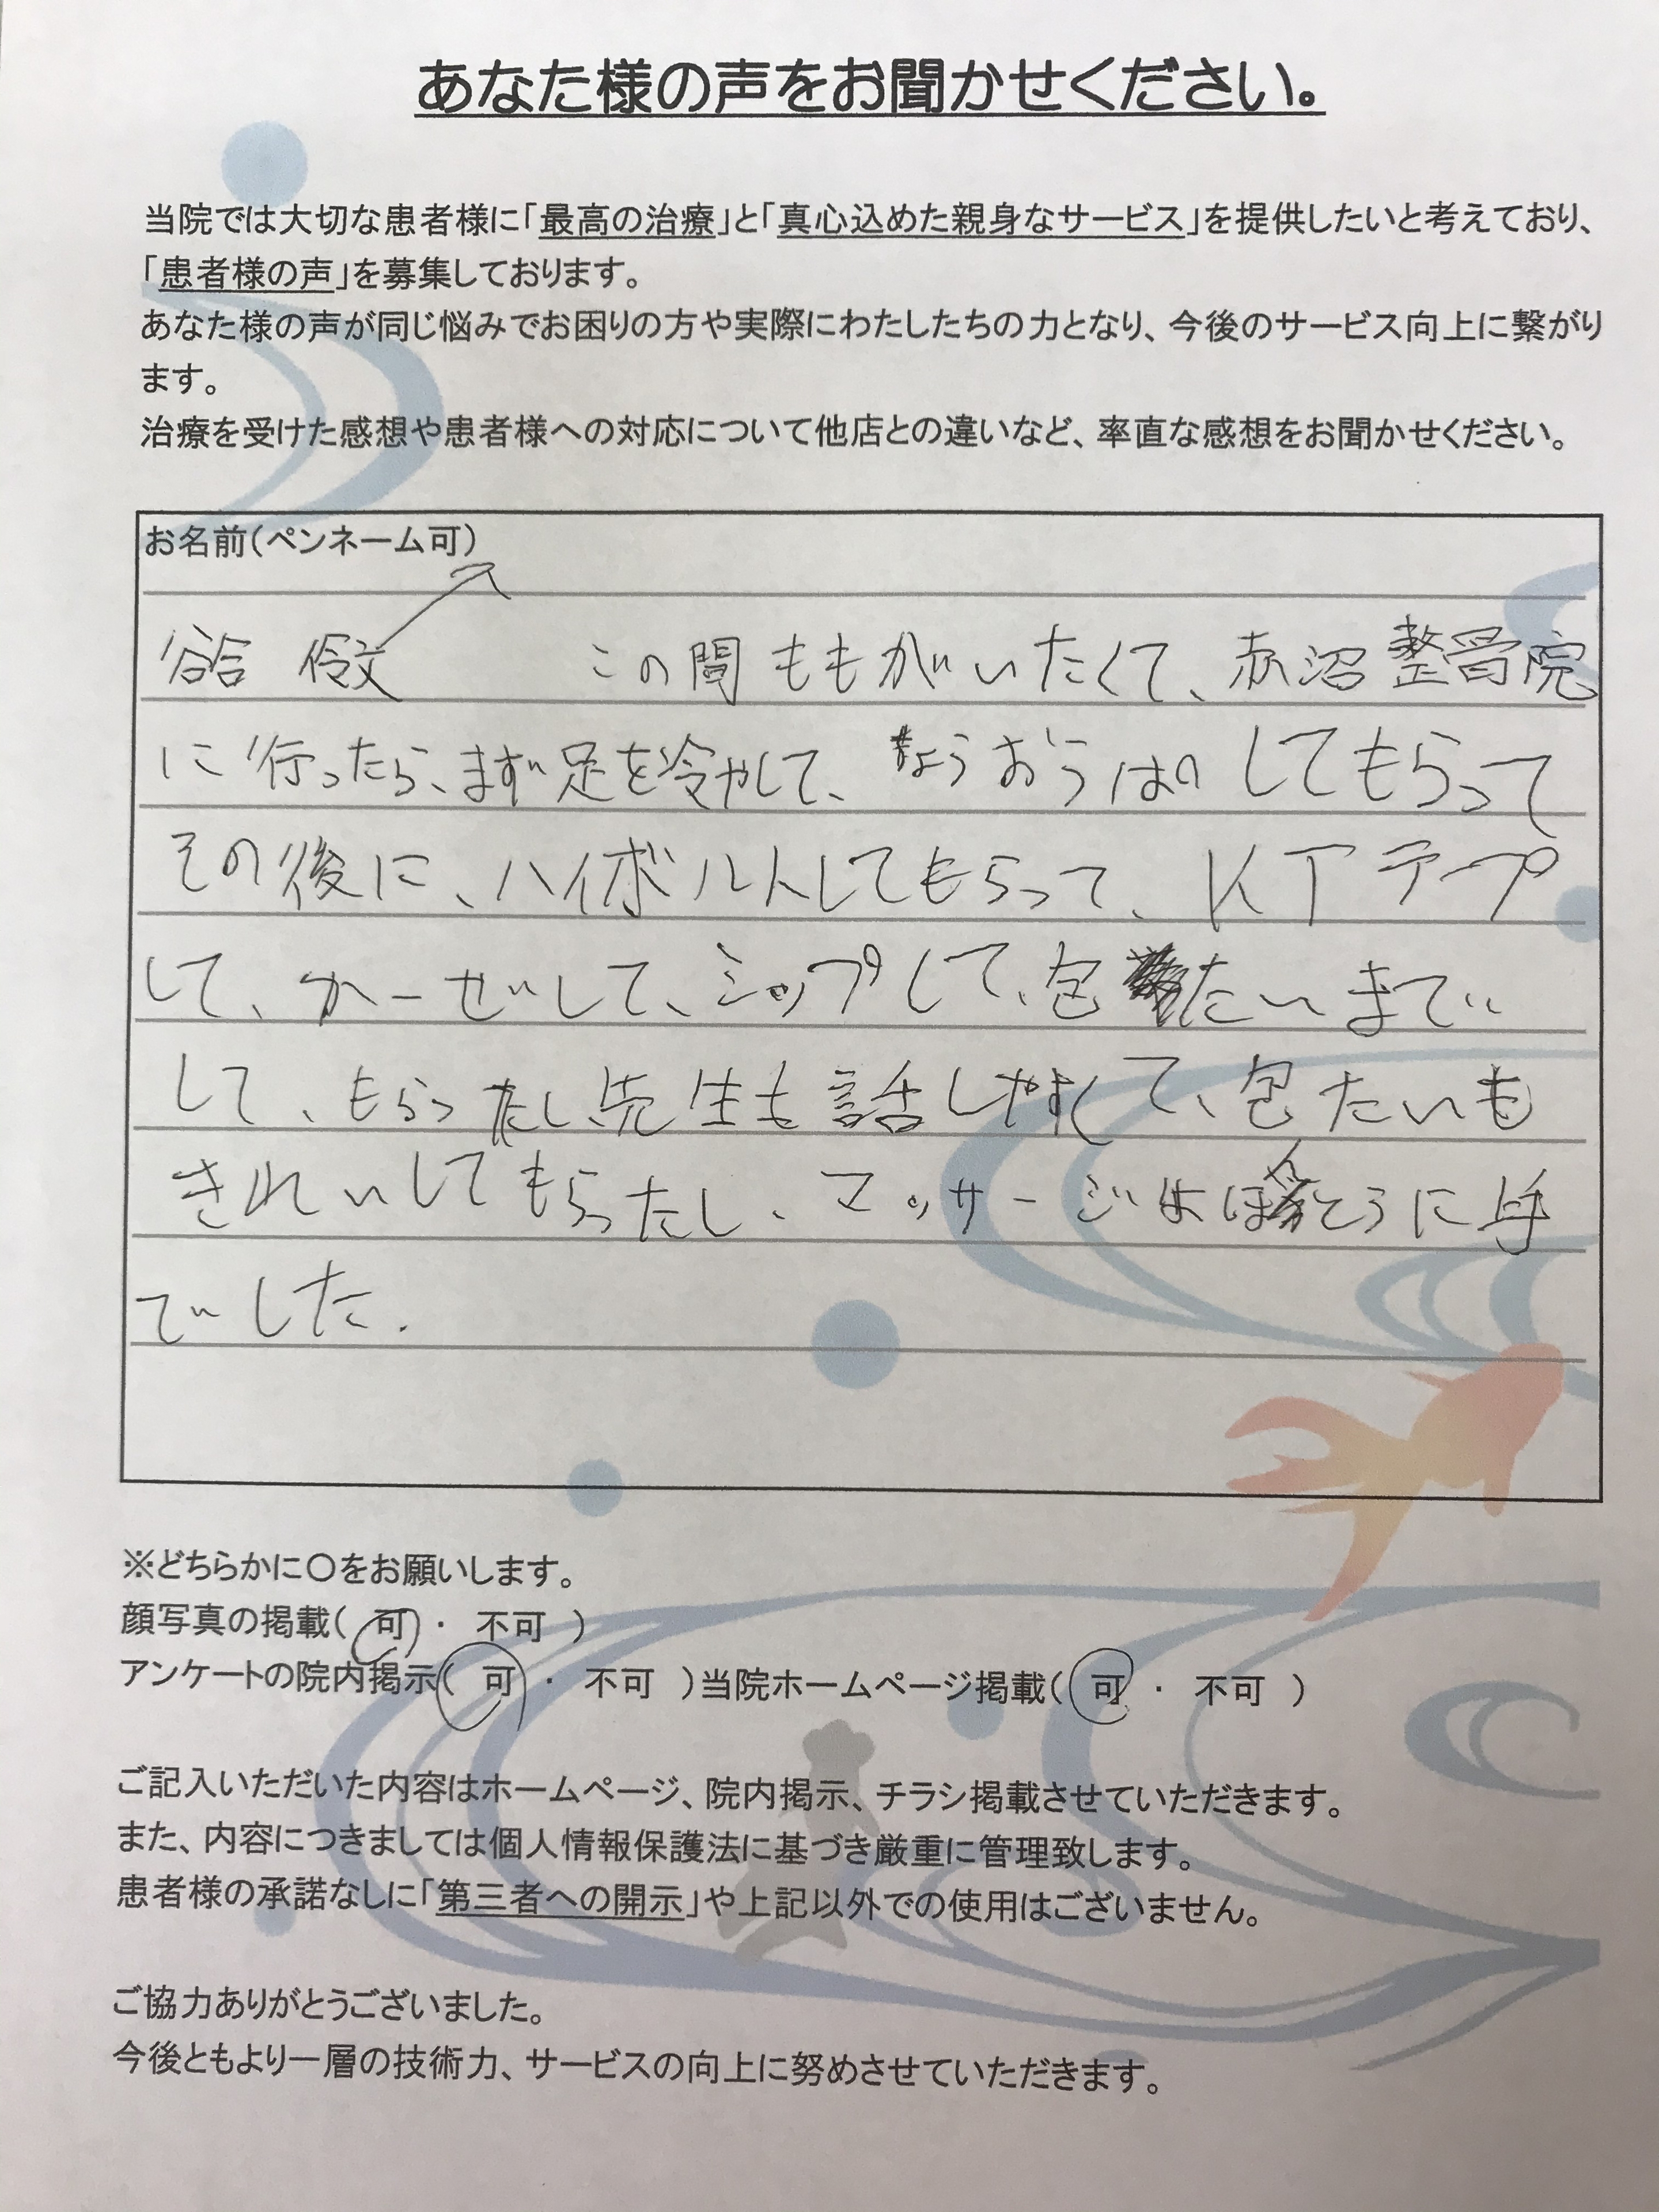 あなた様の声をお聞かせください。
当院では大切な患者様に「最高の治療」と「真心込めた親身なサービス」を提供したいと考えており、
「患者様の声」を募集しております。
あなた様の声が同じ悩みでお困りの方や実際にわたしたちの力となり、今後のサービス向上に繋がり
ます。
治療を受けた感想や患者様への対応について他店との違いなど、率直な感想をお聞かせください。
お名前(ペンネーム可)
この間ももがいたくて、赤沼整骨院
に行ったら、まず足を冷やして、ちょうおうはしてもらって
その後に、ハイボルトしてもらって、KTテープ
して、カーゼして、シップして、包たいまで
して、もらったし、先生も話しやすくて、包たいも
きれいしてもらったし、マッサージはほんとうに上手
でした.
※どちらかに〇をお願いします。
顔写真の掲載( 可 ・ 不可 )
アンケートの院内掲示( 可 ・ 不可 )当院ホームページ掲載( 可 ・ 不可 )
ご記入いただいた内容はホームページ、院内掲示、チラシ掲載させていただきます。
また、内容につきましては個人情報保護法に基づき厳重に管理致します。
患者様の承諾なしに「第三者への開示」や上記以外での使用はございません。
ご協力ありがとうございました。
今後ともより一層の技術力、サービスの向上に努めさせていただきます。